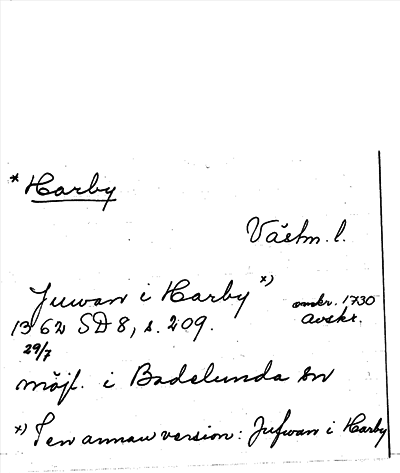 * Harby
Västm. l.
Juwan i Harby x)
omkr. 1730
1362 SD 8, s. 209. avskr.
29/7
möjl. i Badelunda sn
x) I en annan version: Jufwan i Harby